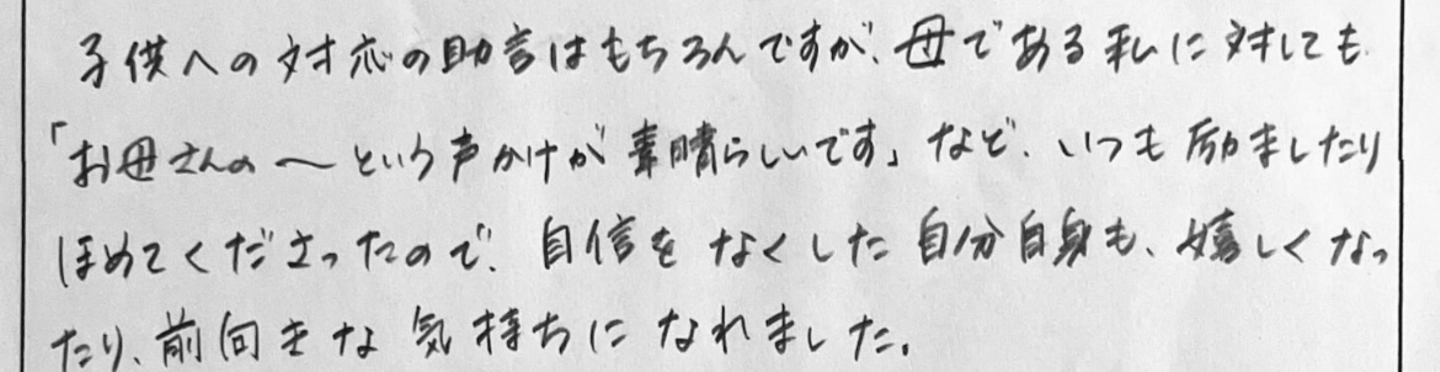 子供への対応の助言はもちろんですが、母である私に対しても
「お母さんの〜という声かけが素晴らしいです」など、いつも励ましたり
ほめてくださったので、自信をなくした自分自身も、嬉しくなっ
たり、前向きな気持ちになれました。